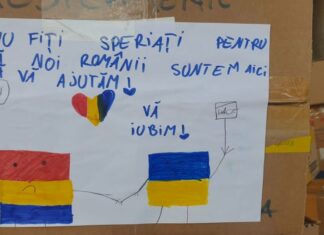 NU FIȚI SPERIAȚI PENTRU
NOI ROMÂNII SUNTEM AICI
VĂ AJUTĂM!
VĂ
IUBIM!